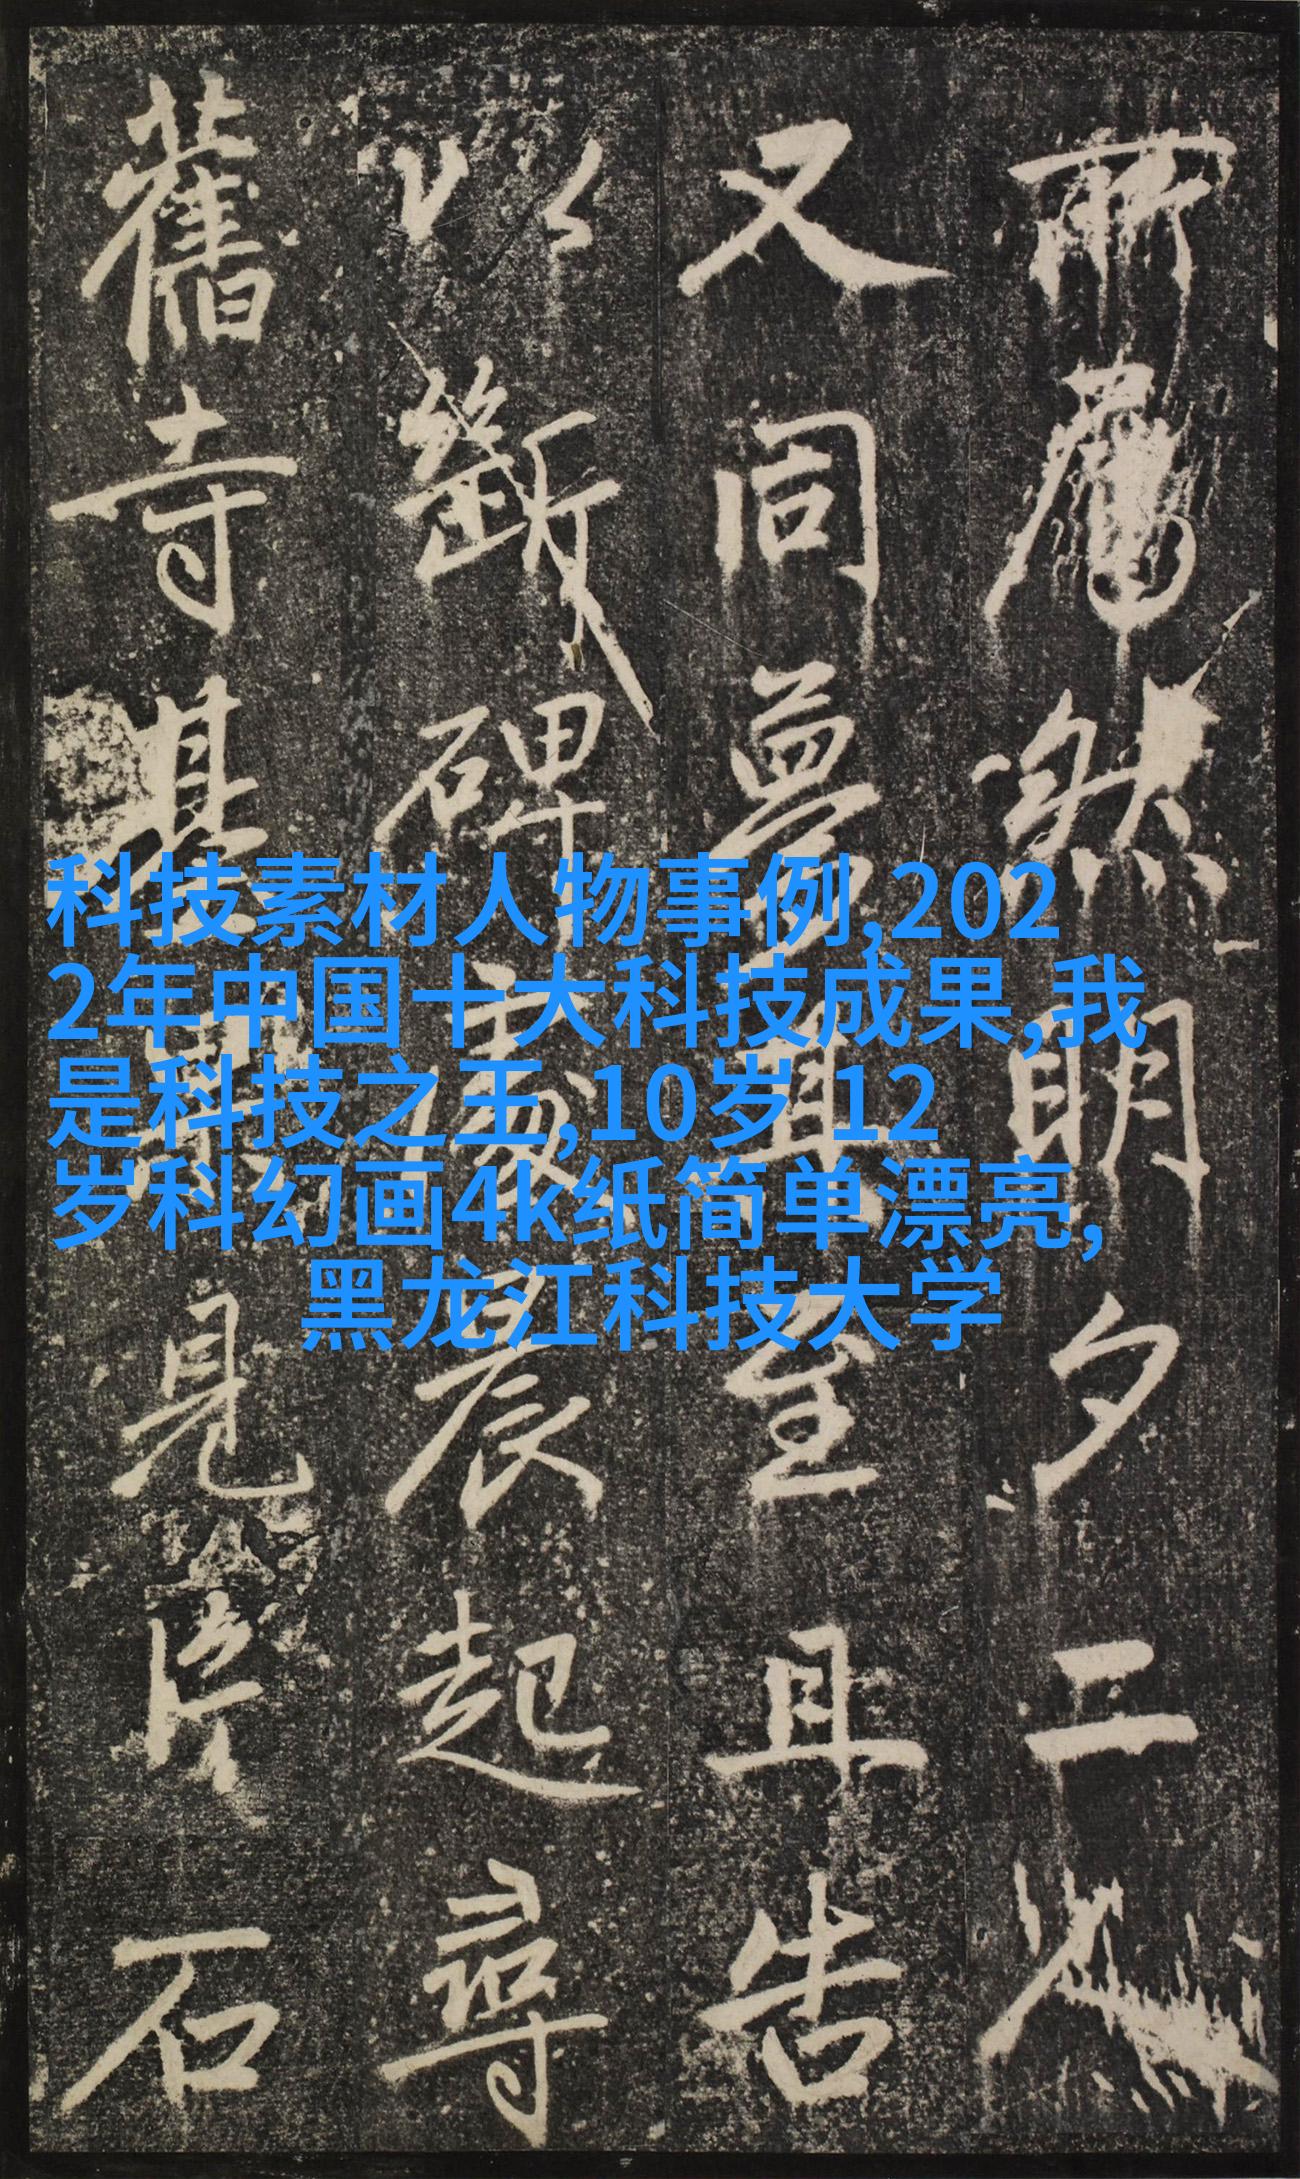 所然明夕二
又同夢且至且告
以斷碑處晨起尋
舊寺基果見片石
科技素材人物事例,202
2年中国十大科技成果,我
是科技之王,10岁 12
岁科幻画4k纸简单漂亮,
黑龙江科技大学